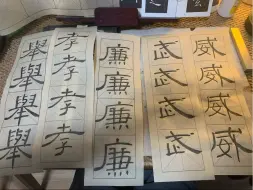 舉舉舉舉
孝孝孝孝
廉廉廉廉
武武武武
威威威威